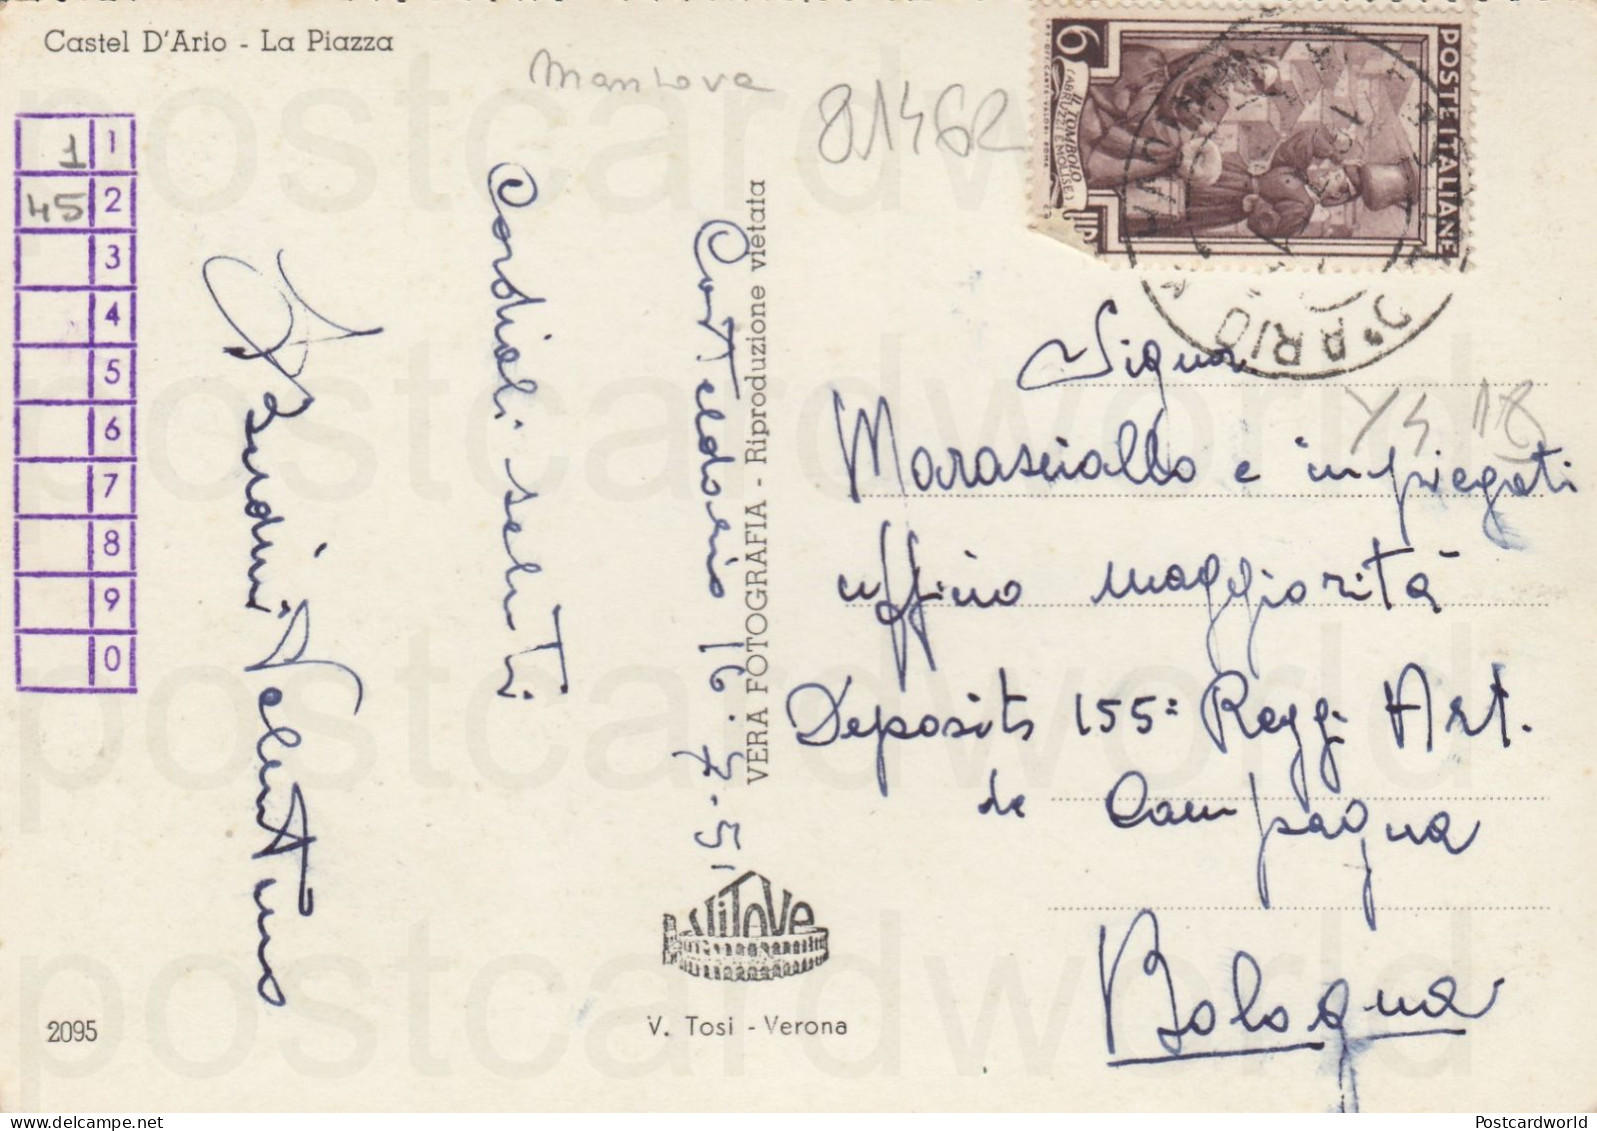 Castel D'Ario - La Piazza
Mantova
81462
1 1
45 2
3
4
5
6
7
8
9
0
6
POSTE ITALIANE
IL TOMBOLO
(ABRUZZI E MOLISE)
D'ARIO
Casteldario 16.7.51
Cordiali saluti
Valentino
VERA FOTOGRAFIA - Riproduzione vietata
Signor
Maresciallo e impiegati
ufficio maggiorità
Deposito 155º Regg. Art.
da Campagna
Bologna
Y4 18
ViToVe
V. Tosi - Verona
2095
postcardworld
postcardworld
postcardworld
postcardworld
delcampe.net
Postcardworld